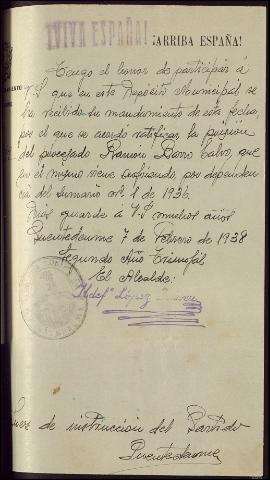 ¡VIVA ESPAÑA!
¡ARRIBA ESPAÑA!
Tengo el honor de participar á
V.S. que en este Deposito Municipal se
ha recibido su mandamiento de esta fecha,
por el que se acordo ratificar la prision
del procesado Ramón Barro Calvo, que
en el mismo viene sufriendo, por dependen
cia del sumario nº 1 de 1936.
Dios guarde á V.S. muchos años
Puentedeume 7 de Febrero de 1938
Segundo Año Triunfal
El Alcalde:
Ildefº López
Juez de instruccion del Partido
Puentedeume